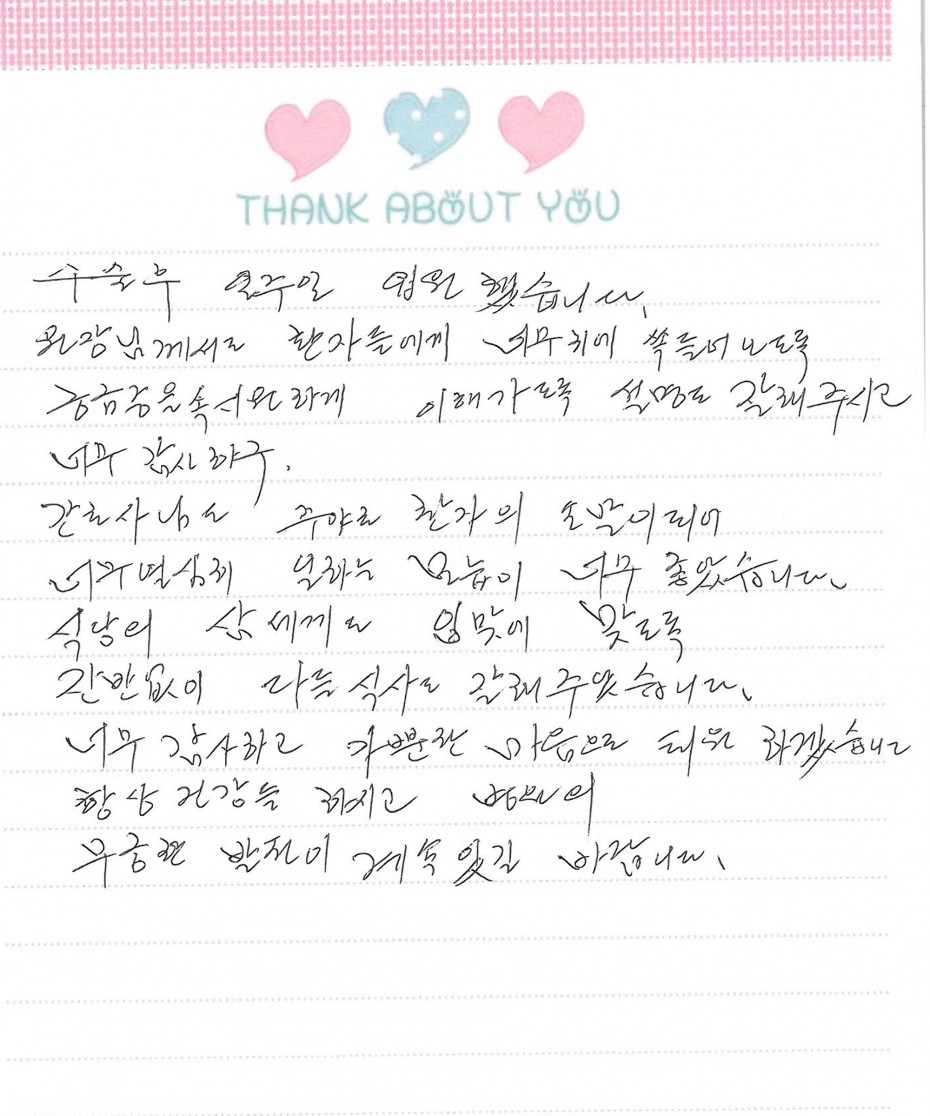 THANK ABOUT YOU
수술후 일주일 입원 했습니다.
원장님께서도 환자들에게 너무 귀에 쏙들어오도록
궁금증을 속시원하게 이해가도록 설명도 잘해주시고
너무 감사하구.
간호사님도 주야로 환자의 손발이 되어
너무 열심히 일하는 모습이 너무 좋았습니다.
식당의 삼세끼도 입맛에 맞도록
잔반없이 다들 식사도 잘해주었습니다.
너무 감사하고 가뿐한 마음으로 퇴원 하겠습니다
항상 건강들 하시고 병원의
무궁한 발전이 계속 있길 바랍니다.